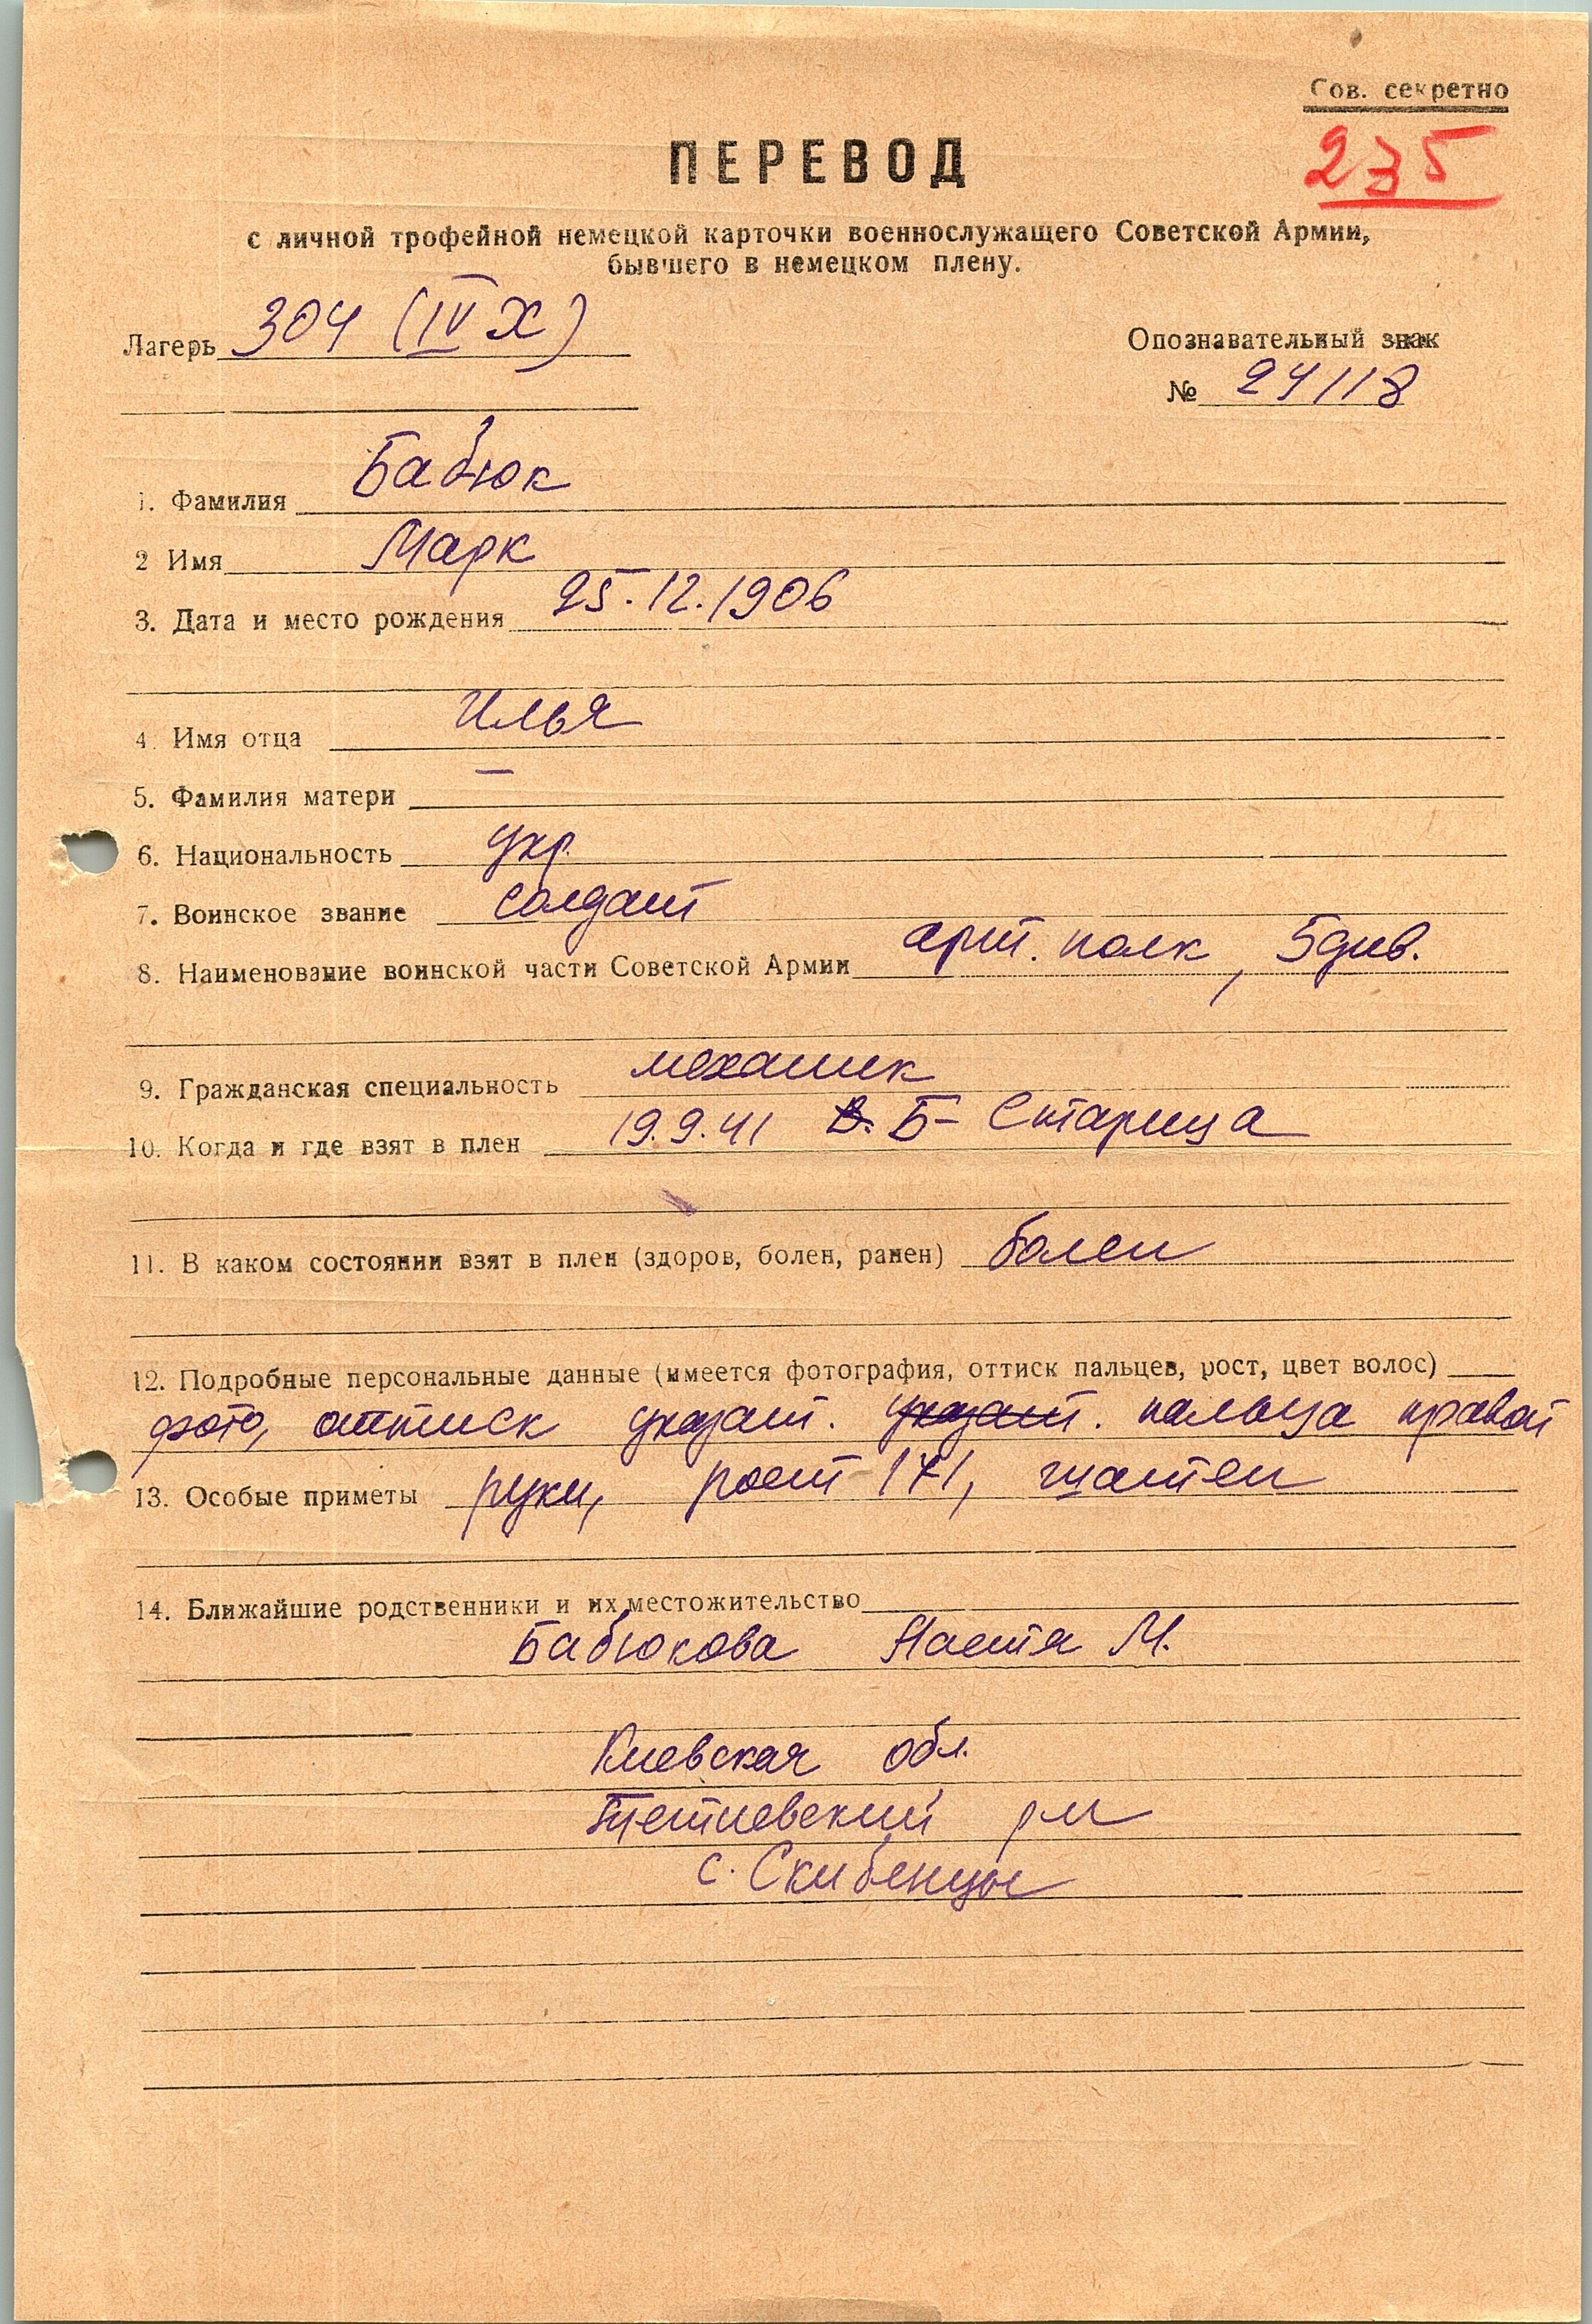 Сов. секретно
235
ПЕРЕВОД
с личной трофейной немецкой карточки военнослужащего Советской Армии,
бывшего в немецком плену.
Лагерь 304 (IV X)
Опознавательный знак
№ 24118
1. Фамилия Бабюк
2 Имя Марк
3. Дата и место рождения 25.12.1906
4. Имя отца Илья
5. Фамилия матери —
6. Национальность укр.
7. Воинское звание солдат
8. Наименование воинской части Советской Армии арт. полк, 5 див.
9. Гражданская специальность механик
10. Когда и где взят в плен 19.9.41 В. Б-Старица
11. В каком состоянии взят в плен (здоров, болен, ранен) болен
12. Подробные персональные данные (имеется фотография, оттиск пальцев, рост, цвет волос)
фото, оттиск указат. указат. пальца правой
13. Особые приметы руки, рост 171, шатен
14. Ближайшие родственники и их местожительство
Бабюкова Настя М.
Киевская обл.
Тетиевский р-н
с. Скибенцы